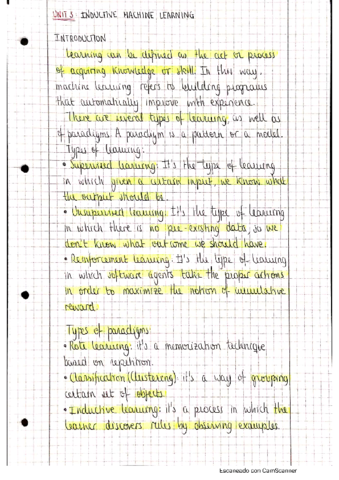 UNIT 3 INDUCTIVE MACHINE LEARNING
INTRODUCTION
Learning can be defined as the act or process
of acquiring knowledge or skill. In this way,
machine learning refers to building programs
that automatically improve with experience.
There are several types of learning, as well as
of paradigms. A paradigm is a pattern or a model.
Types of learning:
• Supervised learning: It's the type of learning
in which given a certain input, we know what
the output should be.
• Unsupervised learning: It's the type of learning
in which there is no pre-existing data, so we
don't know what outcome we should have.
• Reinforcement learning: It's the type of learning
in which software agents take the proper actions
in order to maximize the notion of cumulative
reward.
Types of paradigms:
• Rote learning: it's a memorization technique
based on repetition.
• Classification (Clustering): it's a way of grouping
certain set of objects.
• Inductive learning: it's a process in which the
learner discovers rules by observing examples.
Escaneado con CamScanner